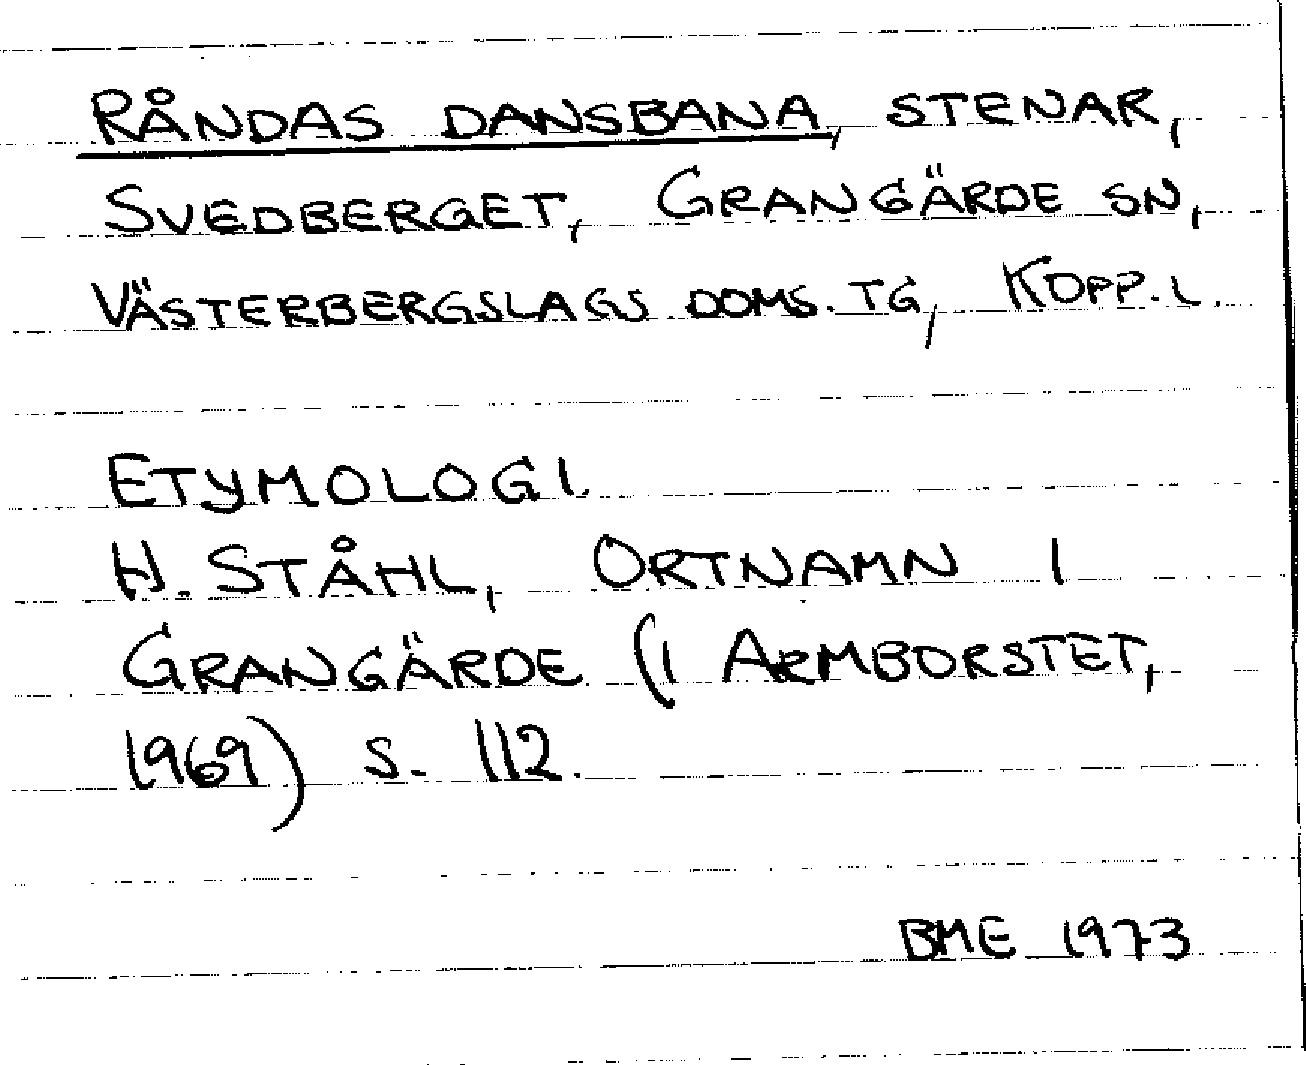 RÅNDAS DANSBANA, STENAR,
SVEDBERGET, GRANGÄRDE SN,
VÄSTERBERGSLAGS DOMS.TG, KOPP.L.
ETYMOLOGI.
H. STÅHL, ORTNAMN I
GRANGÄRDE (I ARMBORSTET,
1969) S. 112.
BME 1973